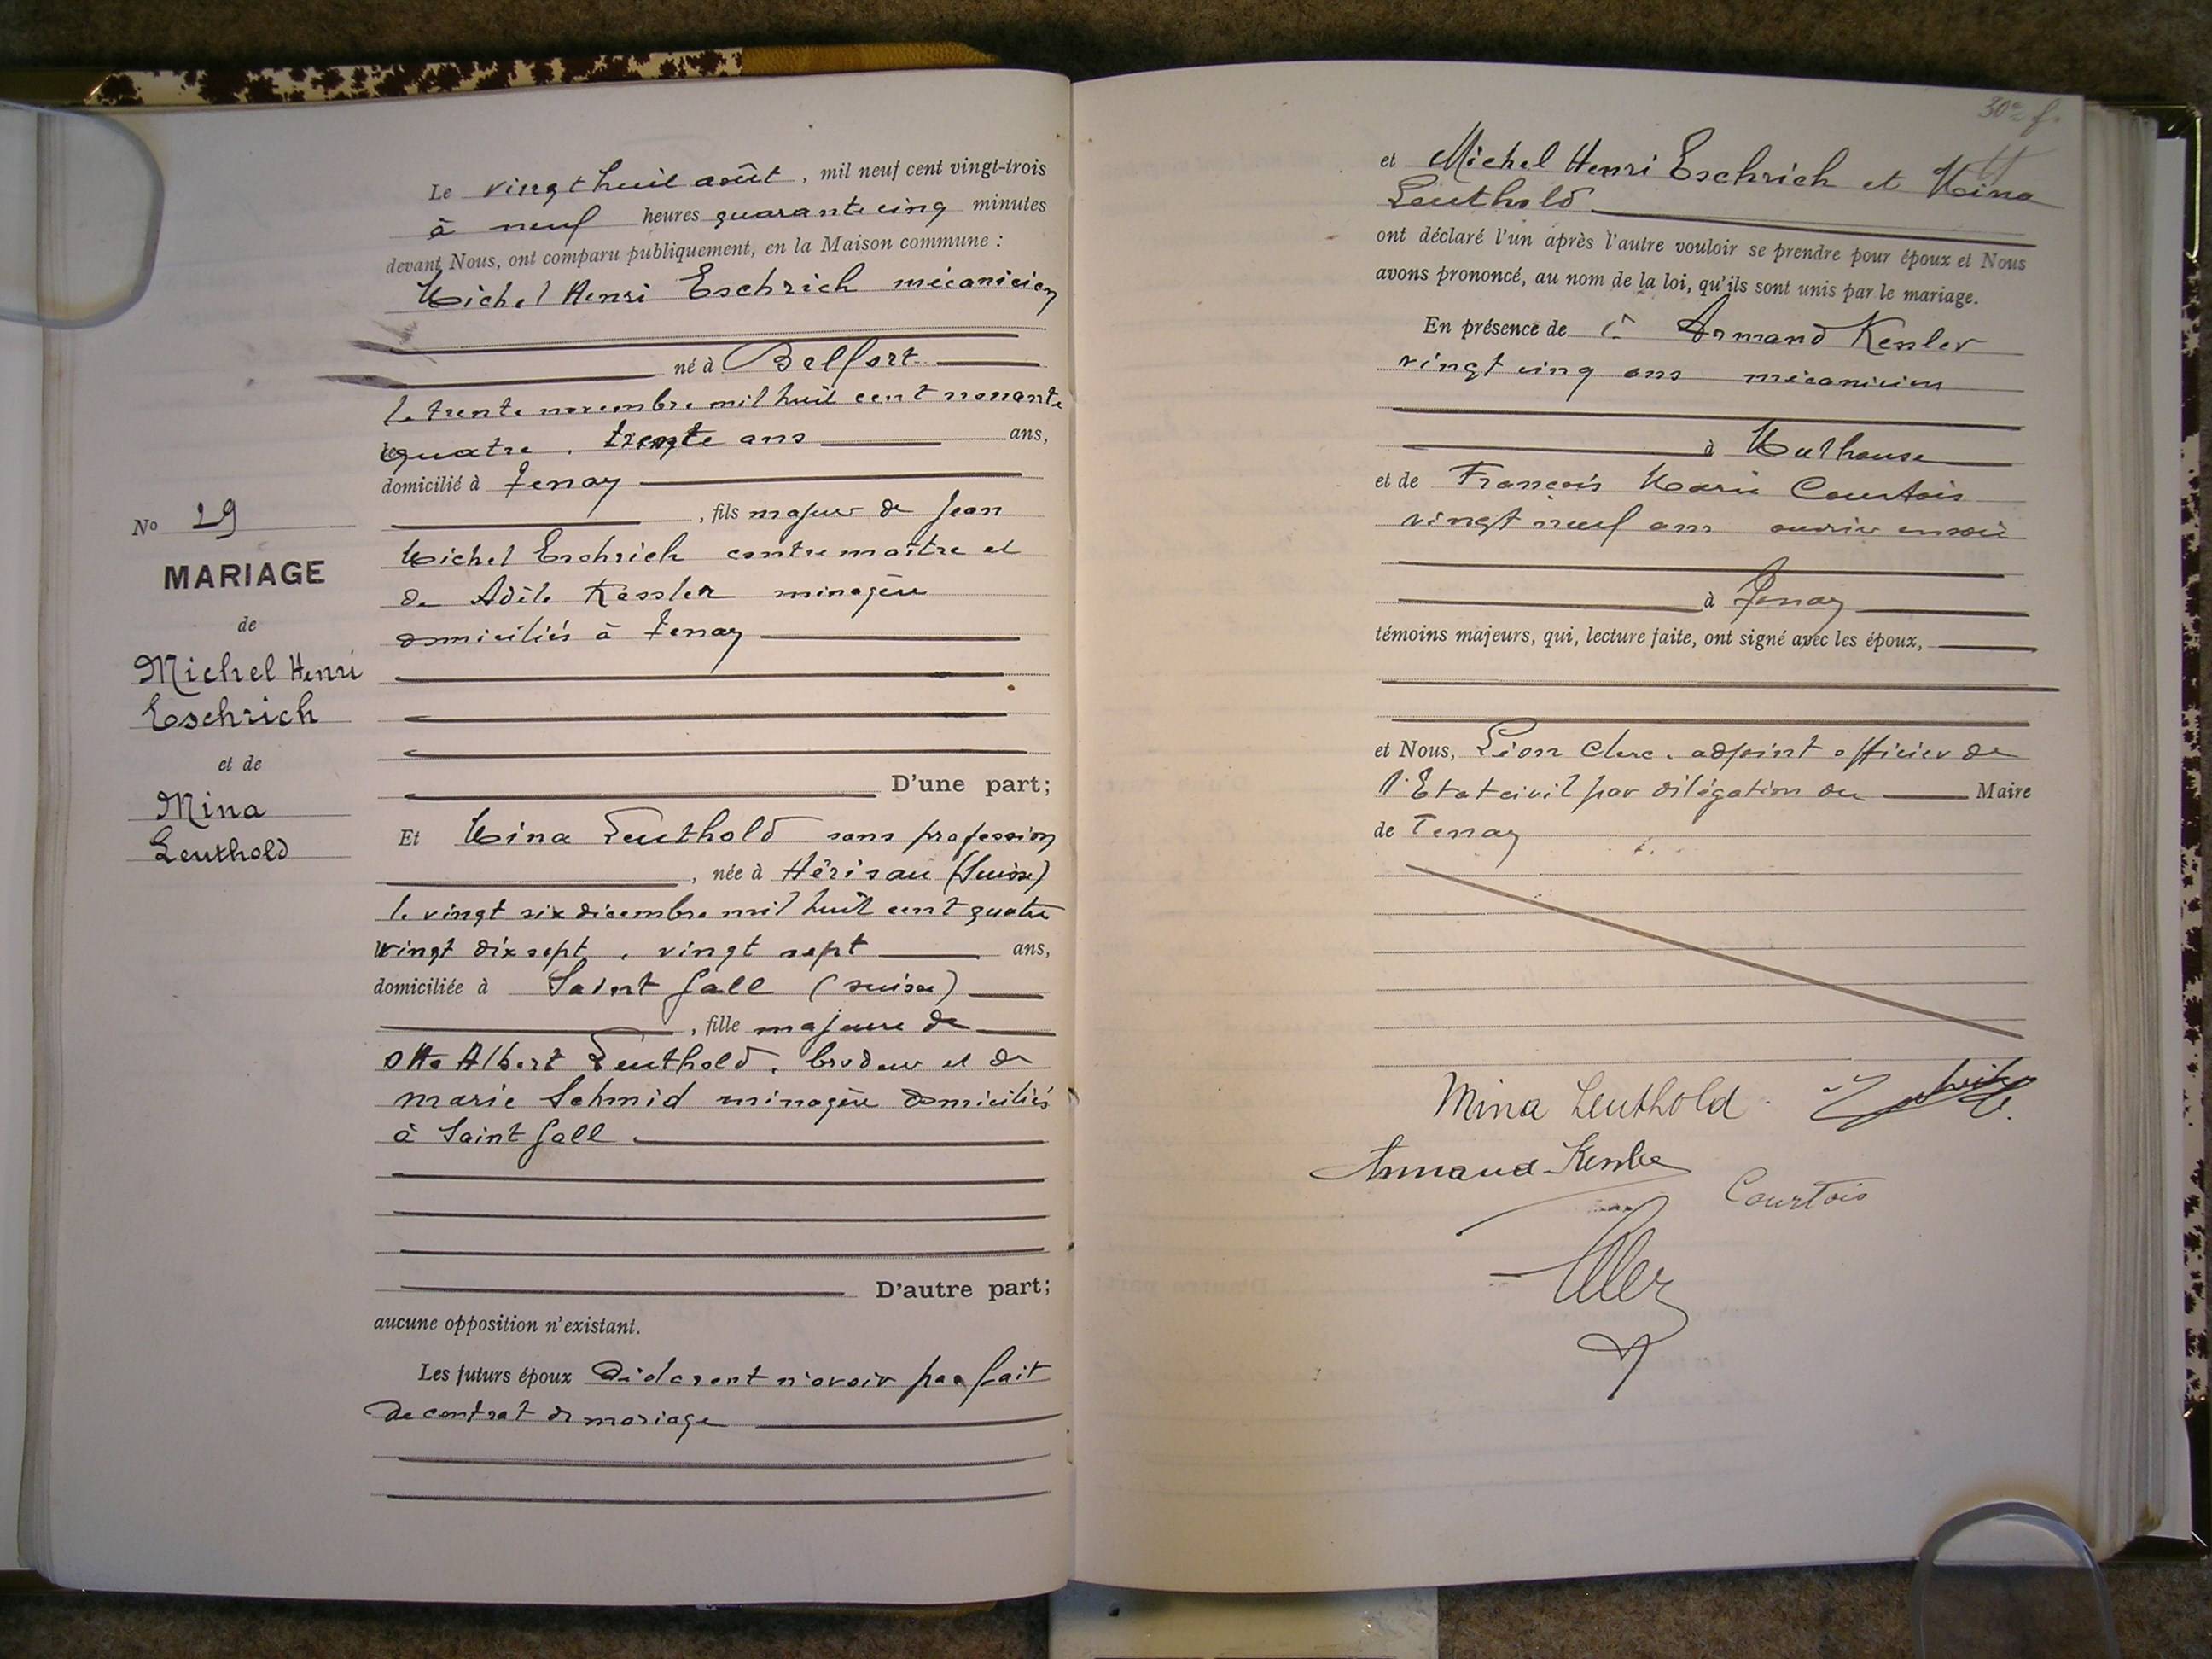 No 29
MARIAGE
de
Michel Henri
Eschrich
et de
Mina
Leuthold
Le vingt huit août, mil neuf cent vingt-trois
à neuf heures quarante cinq minutes
devant Nous, ont comparu publiquement, en la Maison commune :
Michel Henri Eschrich mécanicien
né à Belfort
le trente novembre mil huit cent nonante
quatre, trente ans ans,
domicilié à Tenay
, fils majeur de Jean
Michel Eschrich contremaître et
de Adèle Kessler ménagère
domiciliés à Tenay
D'une part;
Et Mina Leuthold sans profession
, née à Hérisau (Suisse)
le vingt six décembre mil huit cent quatre
vingt dix sept, vingt sept ans,
domiciliée à Saint Gall (suisse)
, fille majeure de
Otto Albert Leuthold, brodeur et de
marie Schmid ménagère domiciliés
à Saint Gall
D'autre part;
aucune opposition n'existant.
Les futurs époux déclarent n'avoir pas fait
de contrat de mariage
30e f.
et Michel Henri Eschrich et Mina
Leuthold
ont déclaré l'un après l'autre vouloir se prendre pour époux et Nous
avons prononcé, au nom de la loi, qu'ils sont unis par le mariage.
En présence de Armand Kesler
vingt cinq ans mécanicien
à Mulhouse
et de François Marie Courtois
vingt neuf ans ouvrier en soie
à Tenay
témoins majeurs, qui, lecture faite, ont signé avec les époux,
et Nous, Léon Clerc, adjoint officier de
l'Etat civil par délégation du Maire
de Tenay
Mina Leuthold
Armand Kesler
Courtois